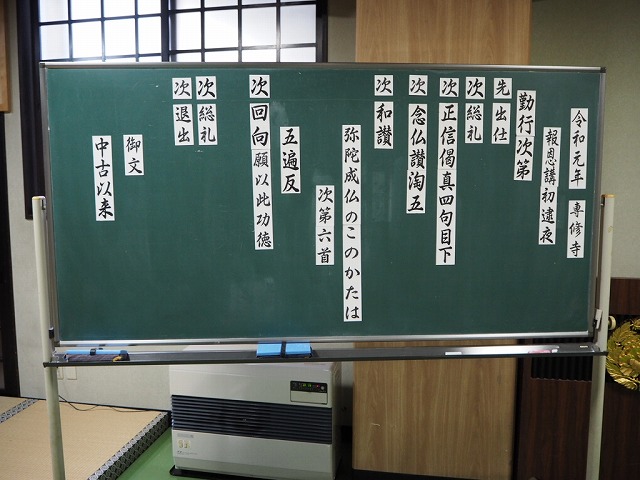 令和元年 専修寺
報恩講初逮夜
勤行次第
先 出仕
次 総礼
次 正信偈真四句目下
次 念仏讃淘五
次 和讃
弥陀成仏のこのかたは
次第六首
五遍反
次 回向 願以此功徳
次 総礼
次 退出
御文
中古以来